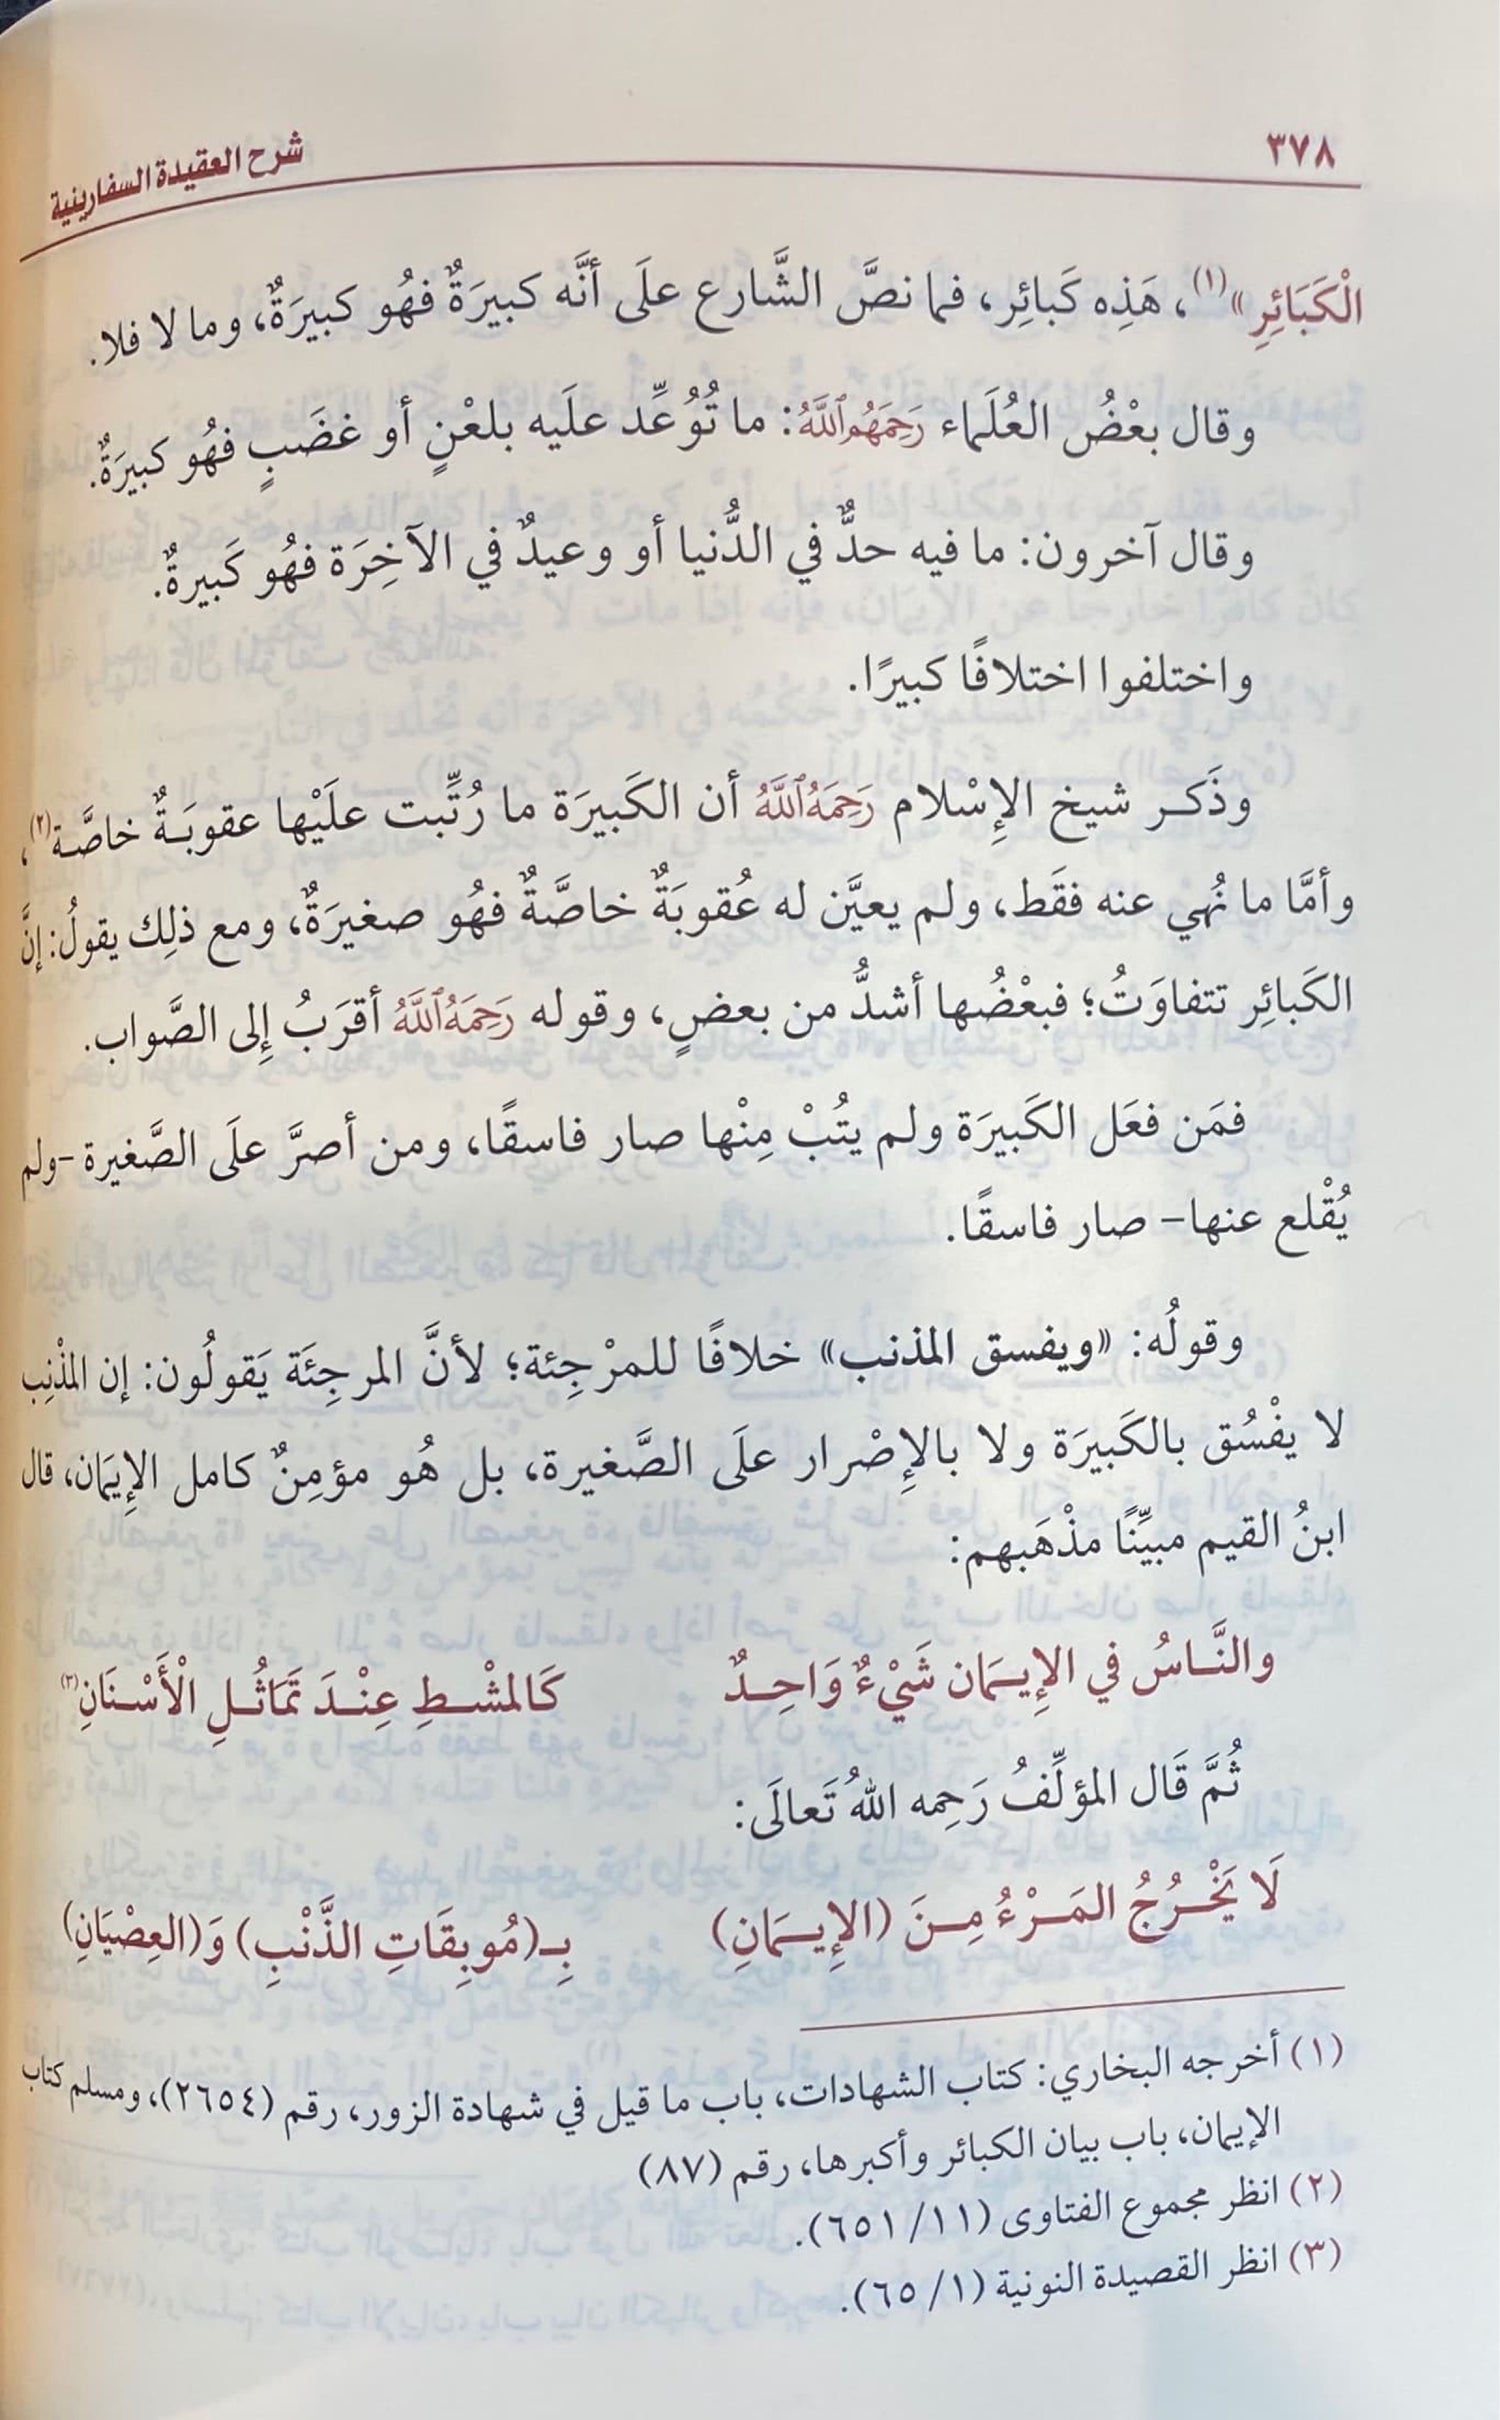 ٣٧٨
شرح العقيدة السفارينية
الْكَبَائِرِ»(١)، هَذِه كَبائِر، فما نصَّ الشَّارع علَى أنَّه كبيرَةٌ فهُو كبيرَةٌ، وما لا فلا.
وقال بعْضُ العُلَماء رَحِمَهُمُ اللَّهُ: ما تُوُعِّد علَيه بلعْنٍ أو غضَبٍ فهُو كبيرَةٌ.
وقال آخرون: ما فيه حدٌّ في الدُّنيا أو وعيدٌ في الآخِرَة فهُو كَبيرةٌ.
واختلفوا اختلافًا كبيرًا.
وذَكر شيخ الإِسْلام رَحِمَهُ اللَّهُ أن الكَبيرَة ما رُتِّبت علَيْها عقوبَةٌ خاصَّة(٢)،
وأمَّا ما نُهي عنه فقَط، ولم يعيَّن له عُقوبَةٌ خاصَّةٌ فهُو صغيرَةٌ، ومع ذلِك يقولُ: إنَّ
الكَبائِر تتفاوَتُ؛ فبعْضُها أشدُّ من بعضٍ، وقوله رَحِمَهُ اللَّهُ أقرَبُ إِلى الصَّواب.
فمَن فعَل الكَبيرَة ولم يتُبْ مِنْها صار فاسقًا، ومن أصرَّ علَى الصَّغيرة -ولم
يُقْلع عنها- صار فاسقًا.
وقولُه: «ويفسق المذنب» خلافًا للمرْجِئة؛ لأنَّ المرجِئَة يَقولُون: إن المذْنِب
لا يفْسُق بالكَبيرَة ولا بالإِصْرار علَى الصَّغيرة، بل هُو مؤمِنٌ كامل الإيَمان، قال
ابنُ القيم مبيِّنًا مذْهَبهم:
والنَّاسُ في الإِيمَان شَيْءٌ وَاحِدٌ كَالمشْطِ عِنْدَ تَمَاثُلِ الْأَسْنَانِ(٣)
ثُمَّ قَال المؤلِّفُ رَحِمه اللهُ تَعالَى:
لَا يَخْرُجُ المَرْءُ مِنَ (الإِيمَانِ) بِـ(مُوبِقَاتِ الذَّنْبِ) وَ(العِصْيَانِ)
(١) أخرجه البخاري: كتاب الشهادات، باب ما قيل في شهادة الزور، رقم (٢٦٥٤)، ومسلم كتاب
الإيمان، باب بيان الكبائر وأكبرها، رقم (٨٧)
(٢) انظر مجموع الفتاوى (١١/ ٦٥١).
(٣) انظر القصيدة النونية (١/ ٦٥).